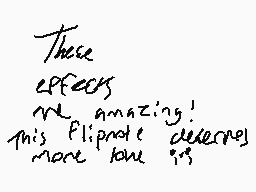 These
effects
are amazing!
This flipnote deserves
more love ;-;